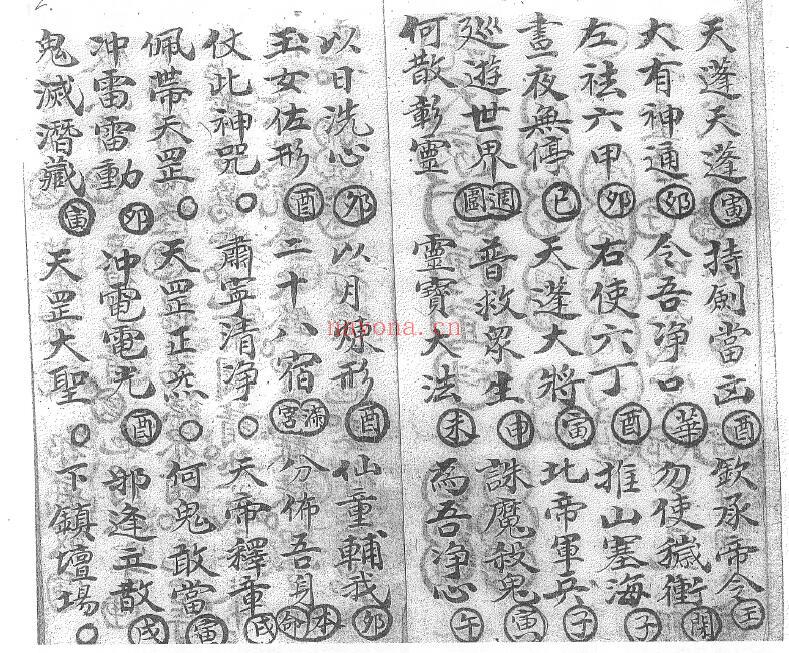 天蓬天蓬寅持劍當酉欽承帝令
大有神通卯令吾净口華勿使穢衝
左祛六甲卯右使六丁酉推山塞海子
晝夜無停巳天蓬大將寅北帝軍兵子
廵遊世界週圓普救眾生申誅魔殺鬼寅
何散彰靈靈寶大法未為吾净心午
以日洗心卯以月煉形酉仙童輔我卯
玉女佐形酉二十八宿滿宮分佈吾身本命
仗此神咒○肅寧清净○天帝釋章戌
佩帶天罡○天罡正炁○何鬼敢當寅
冲雷雷動卯冲電電光酉邪逢立散戌
鬼滅潛藏寅天罡大聖○下鎮壇場○
nayona.cn